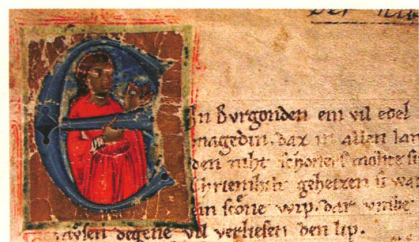 Der
E
In Bvrgonden ein vil edel
magedin. daz in allen lan
den niht schoners mohte si
Chriemhilt geheizen si wa
ein scone wip. dar vmbe
degene vil verliesen den lip.